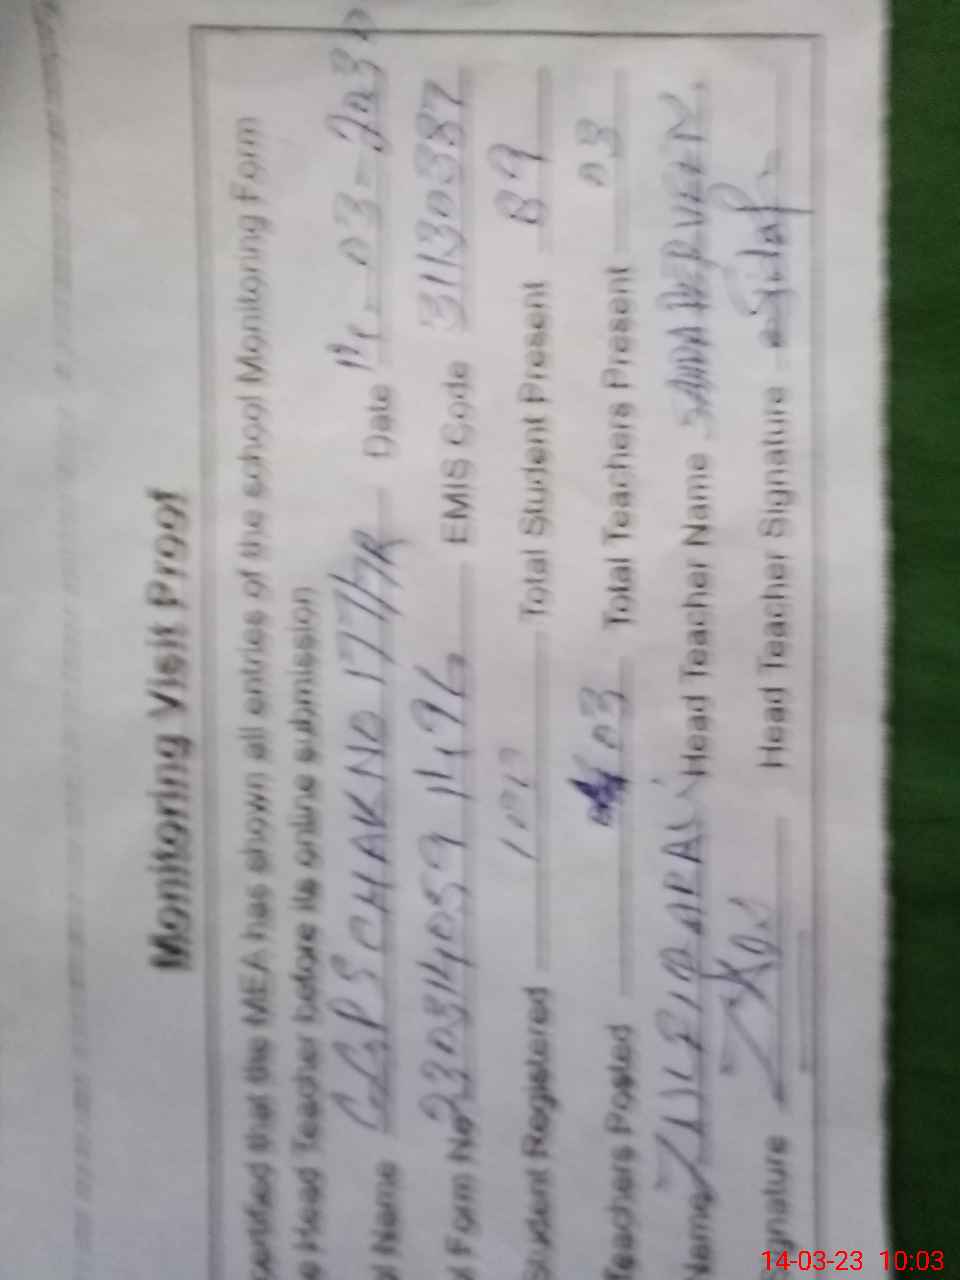 Monitoring Visit Proof
certified that the MEA has shown all entries of the school Monitoring Form
e Head Teacher before its online submission
ol Name GGPS CHAK NO 177/7R Date 14-03-2023
Form No 230314059 11,96 EMIS Code 31130387
Student Registered Total Student Present 89
Teachers Posted 03 Total Teachers Present 03
Name ZULFIQAR ALI Head Teacher Name SAJIDA PERVEEN
ignature Head Teacher Signature
14-03-23 10:03